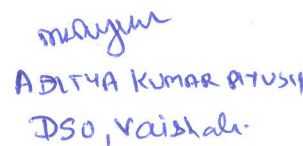 ADITYA KUMAR AYUSH
DSO, Vaishali.